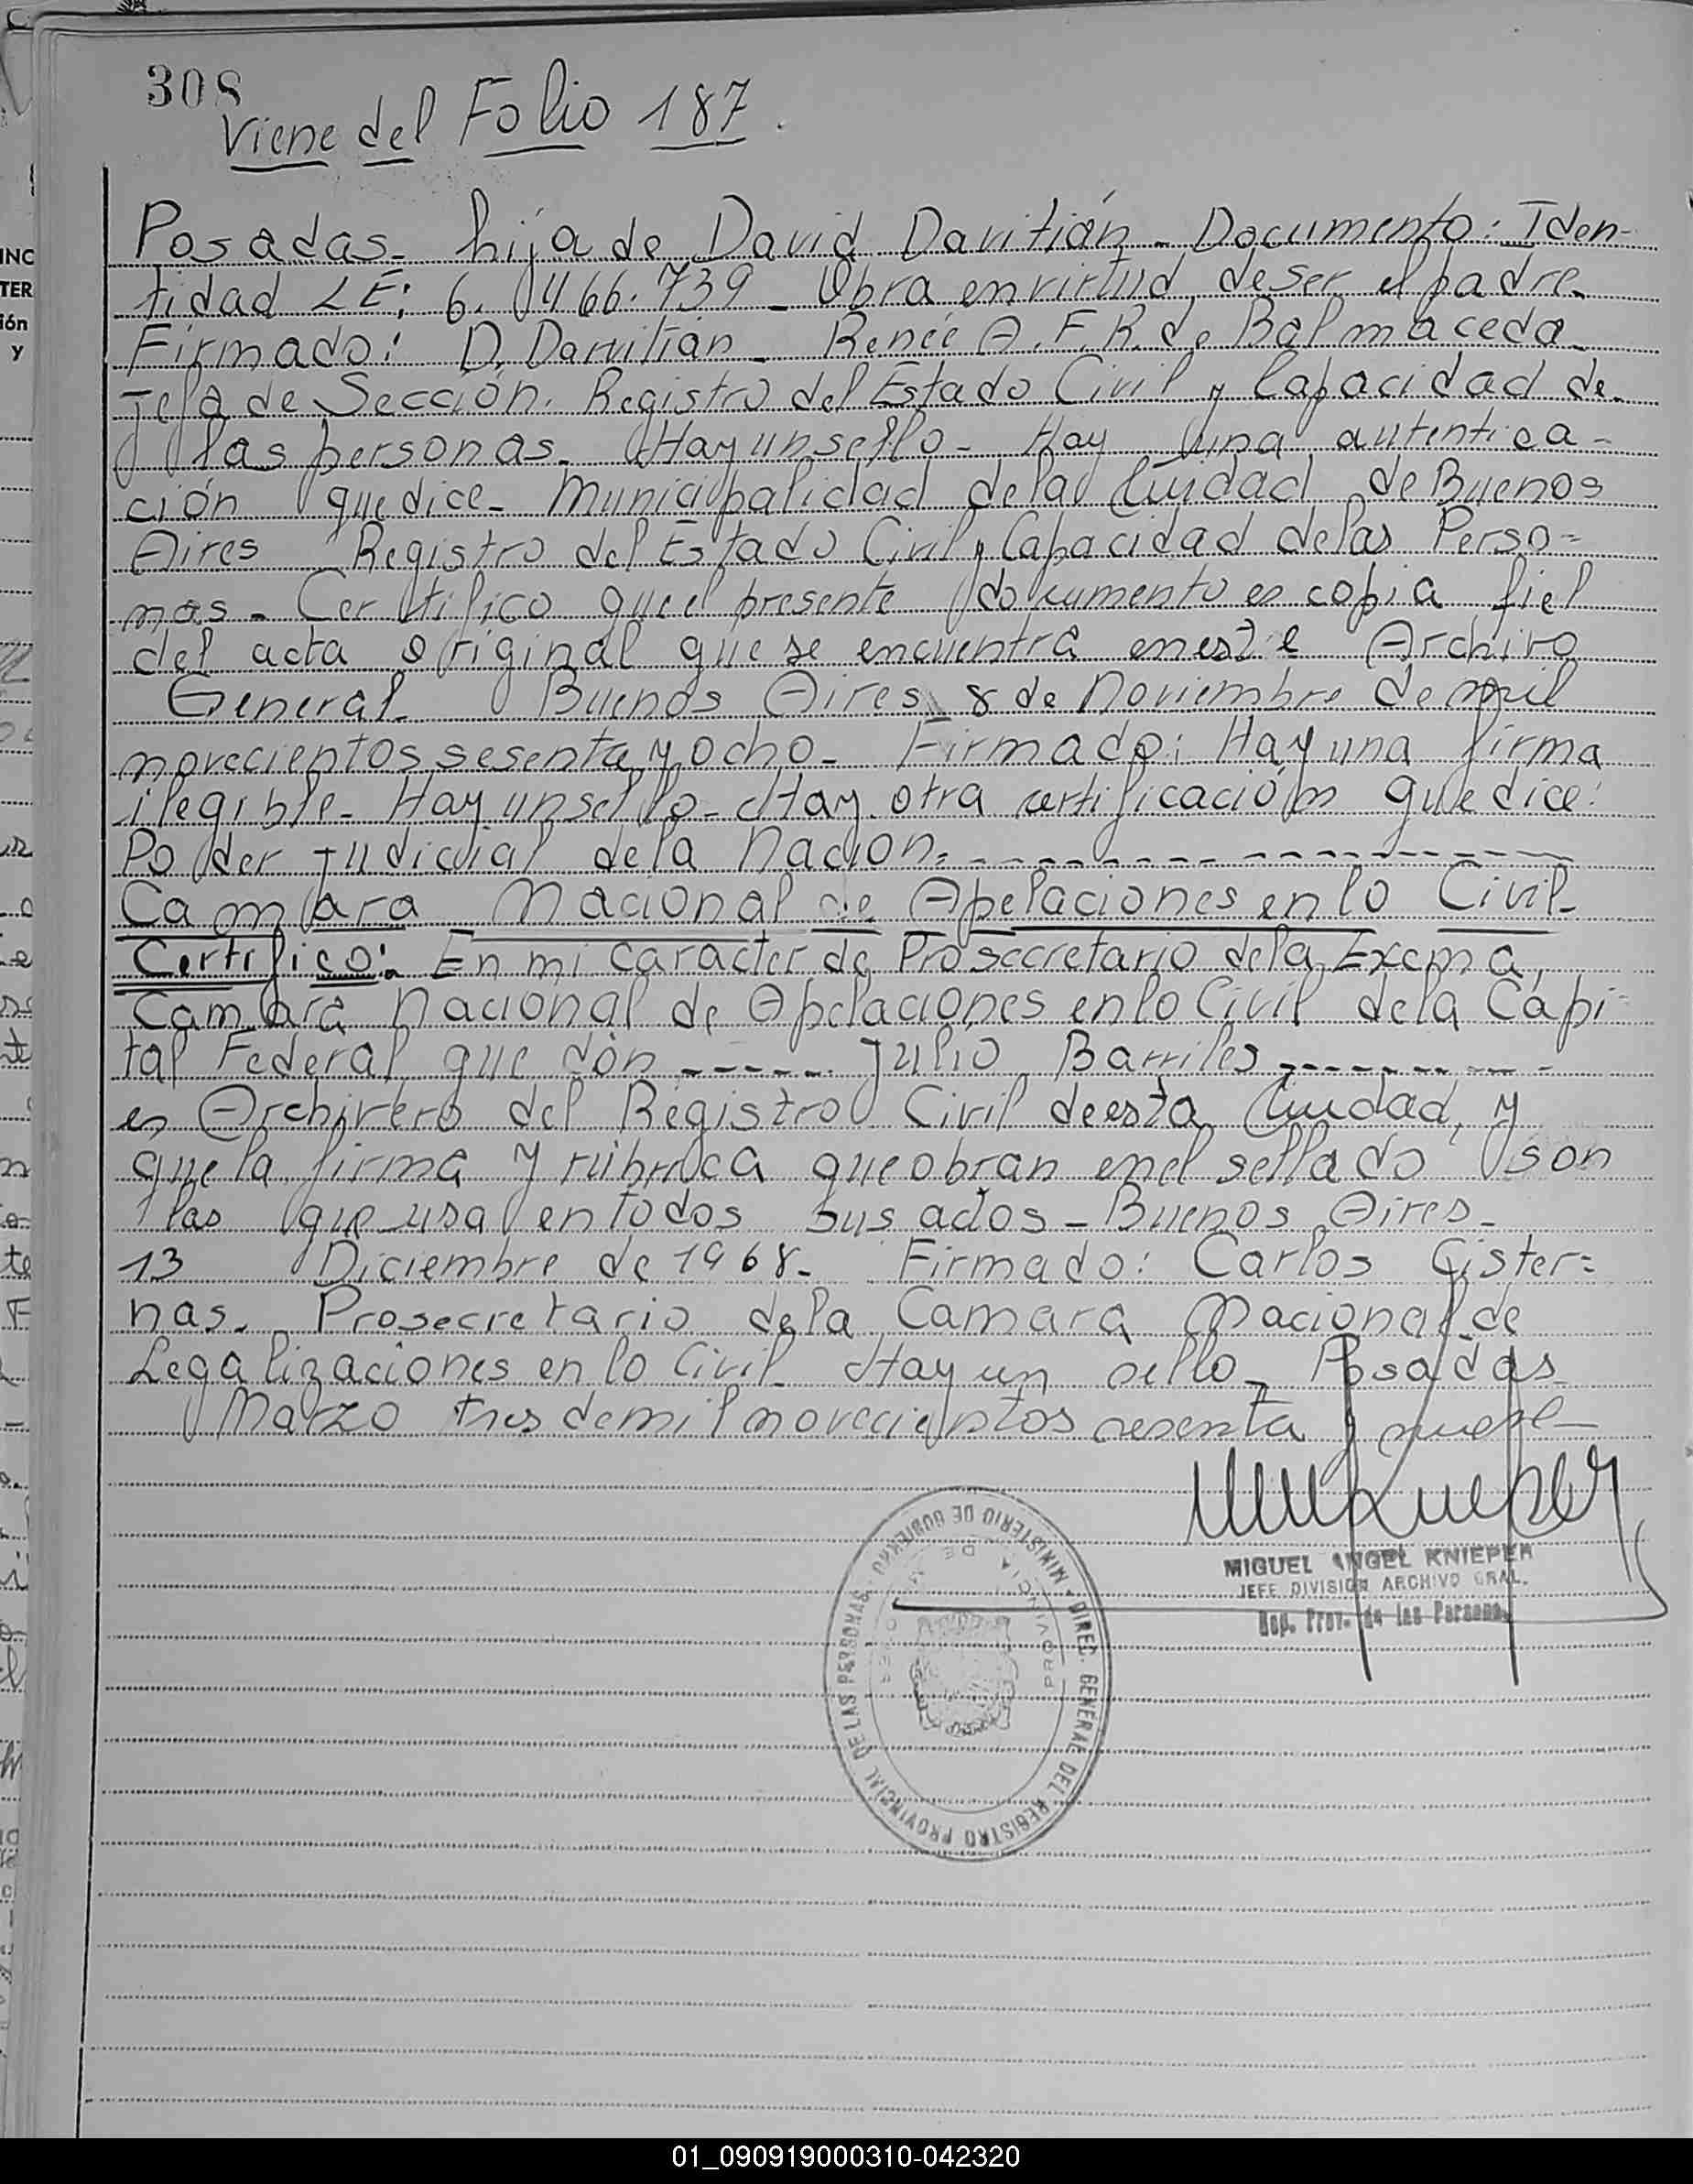 308
Viene del Folio 187.
Posadas. hija de David Davitián. Documento: Iden-
tidad LE: 6. 466.739 - Obra en virtud de ser el padre.
Firmado: D. Davitián. Renée A. F. R. de Balmaceda.
Jefa de Sección. Registro del Estado Civil y Capacidad de
las personas. Hay un sello - Hay una autentica-
ción que dice - Municipalidad de la Ciudad de Buenos
Aires Registro del Estado Civil y Capacidad de las Perso=
nas - Certifico que el presente documento es copia fiel
del acta original que se encuentra en este Archivo
General. Buenos Aires, 8 de Noviembre de mil
novecientos sesenta y ocho - Firmado: Hay una firma
ilegible - Hay un sello - Hay otra certificación que dice:
Poder Judicial de la Nación.
Camara Nacional de Apelaciones en lo Civil -
Certifico: En mi caracter de Prosecretario de la Excma,
Camara Nacional de Apelaciones en lo Civil de la Capi=
tal Federal que don ------ Julio Barriles ---------
es Archivero del Registro Civil de esta Ciudad, y
que la firma y rúbrica que obran en el sellado son
las que usa en todos sus actos - Buenos Aires -
13 Diciembre de 1968. Firmado: Carlos Cister=
nas. Prosecretario de la Camara Nacional de
Legalizaciones en lo Civil. Hay un sello - Posadas
Marzo tres de mil novecientos sesenta y nueve -
MIGUEL ANGEL KNIEPER
JEFE DIVISION ARCHIVO GRAL.
Rep. Prov. de las Personas
DIREC. GENERAL DEL REGISTRO PROVINCIAL DE LAS PERSONAS · MINISTERIO DE GOBIERNO
PROVINCIA DE
01_090919000310-042320